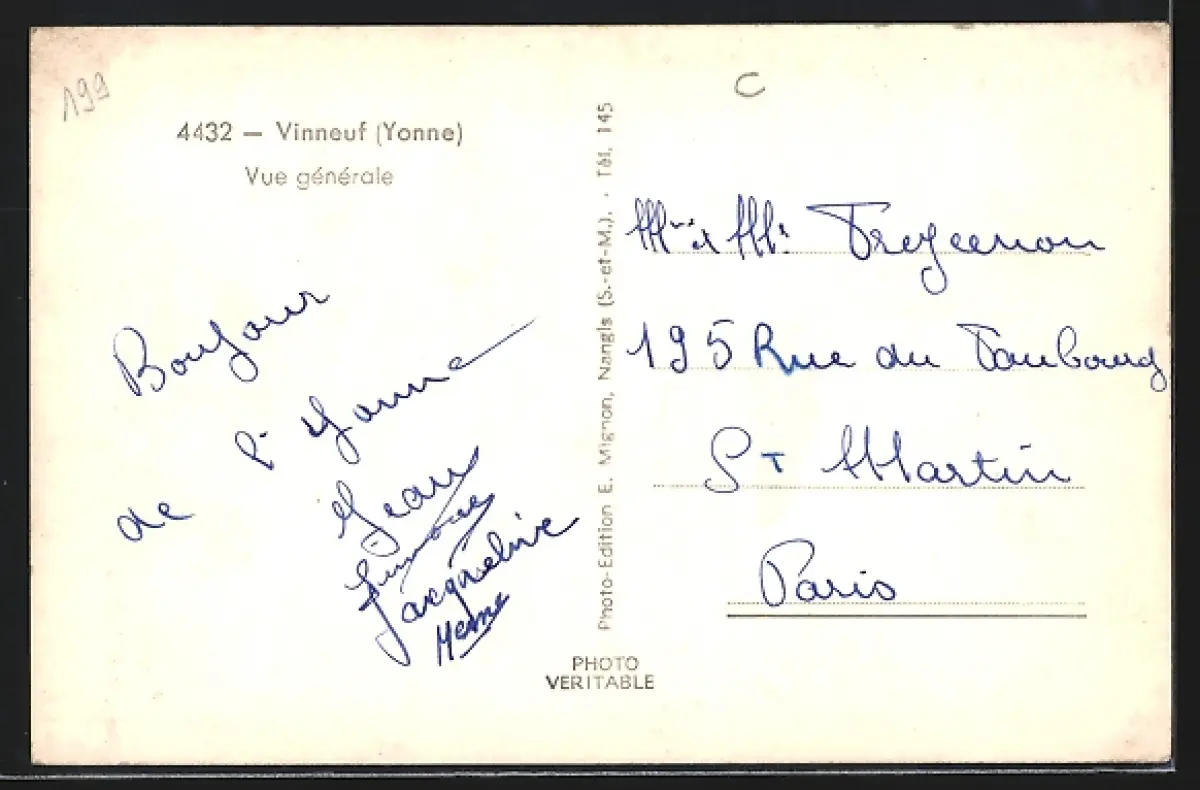 199
C
4432 — Vinneuf (Yonne)
Vue générale
Bonjour
de l'Yonne
Jean
Simone
Jacqueline
Photo-Edition E. Mignon, Nangis (S.-et-M.). - Tél. 145
PHOTO
VERITABLE
195 Rue du Faubourg
St Martin
Paris